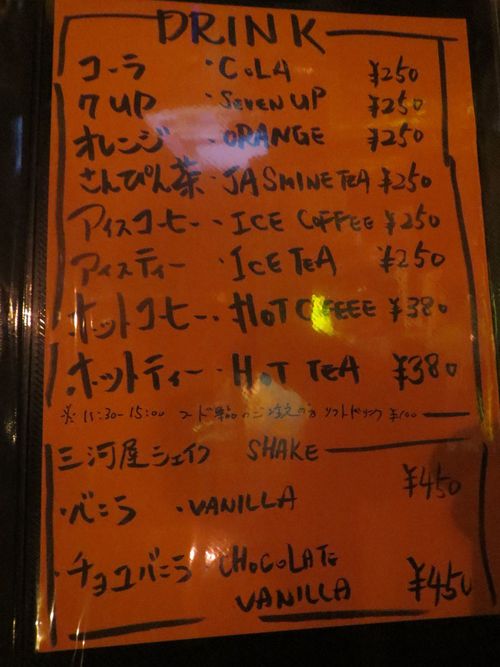 DRINK
コーラ ・COLA ¥250
7UP ・SEVEN UP ¥250
オレンジ ・ORANGE ¥250
さんぴん茶・JASMINE TEA ¥250
アイスコーヒー・ICE COFFEE ¥250
アイスティー ・ICE TEA ¥250
ホットコーヒー・HOT COFFEE ¥380
ホットティー・HOT TEA ¥380
※11:30-15:00 フード単品のご注文の方 ソフトドリンク ¥100
三河屋シェイク SHAKE
・バニラ ・VANILLA ¥450
・チョコバニラ ・CHOCOLATE
VANILLA ¥450